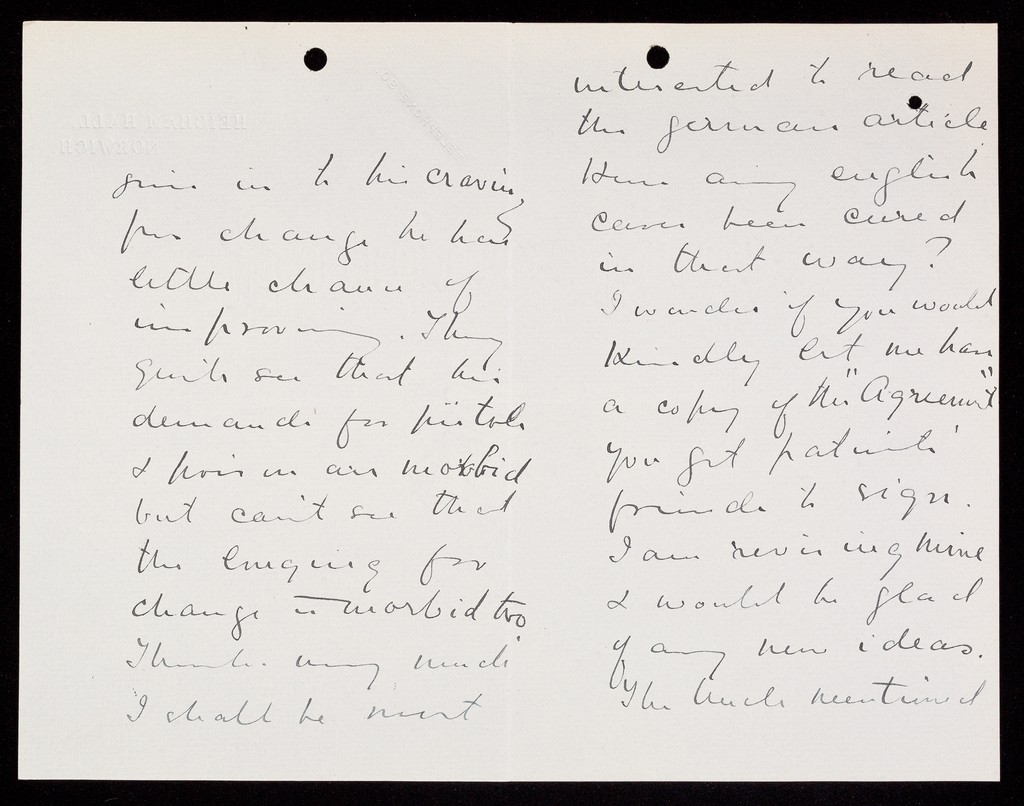 HEIGHAM HALL,
NORWICH
give in to his craving
for change he has
little chance of
improving. They
quite see that his
demands for pistols
& poison are morbid
but can't see that
the longing for
change is morbid too
Thanks very much
I shall be most
interested to read
the german article
Have any english
cases been cured
in that way?
I wonder if you would
kindly let me have
a copy of the "Agreement"
you get patients'
friends to sign.
I am revising mine
& would be glad
of any new ideas.
The uncle mentioned